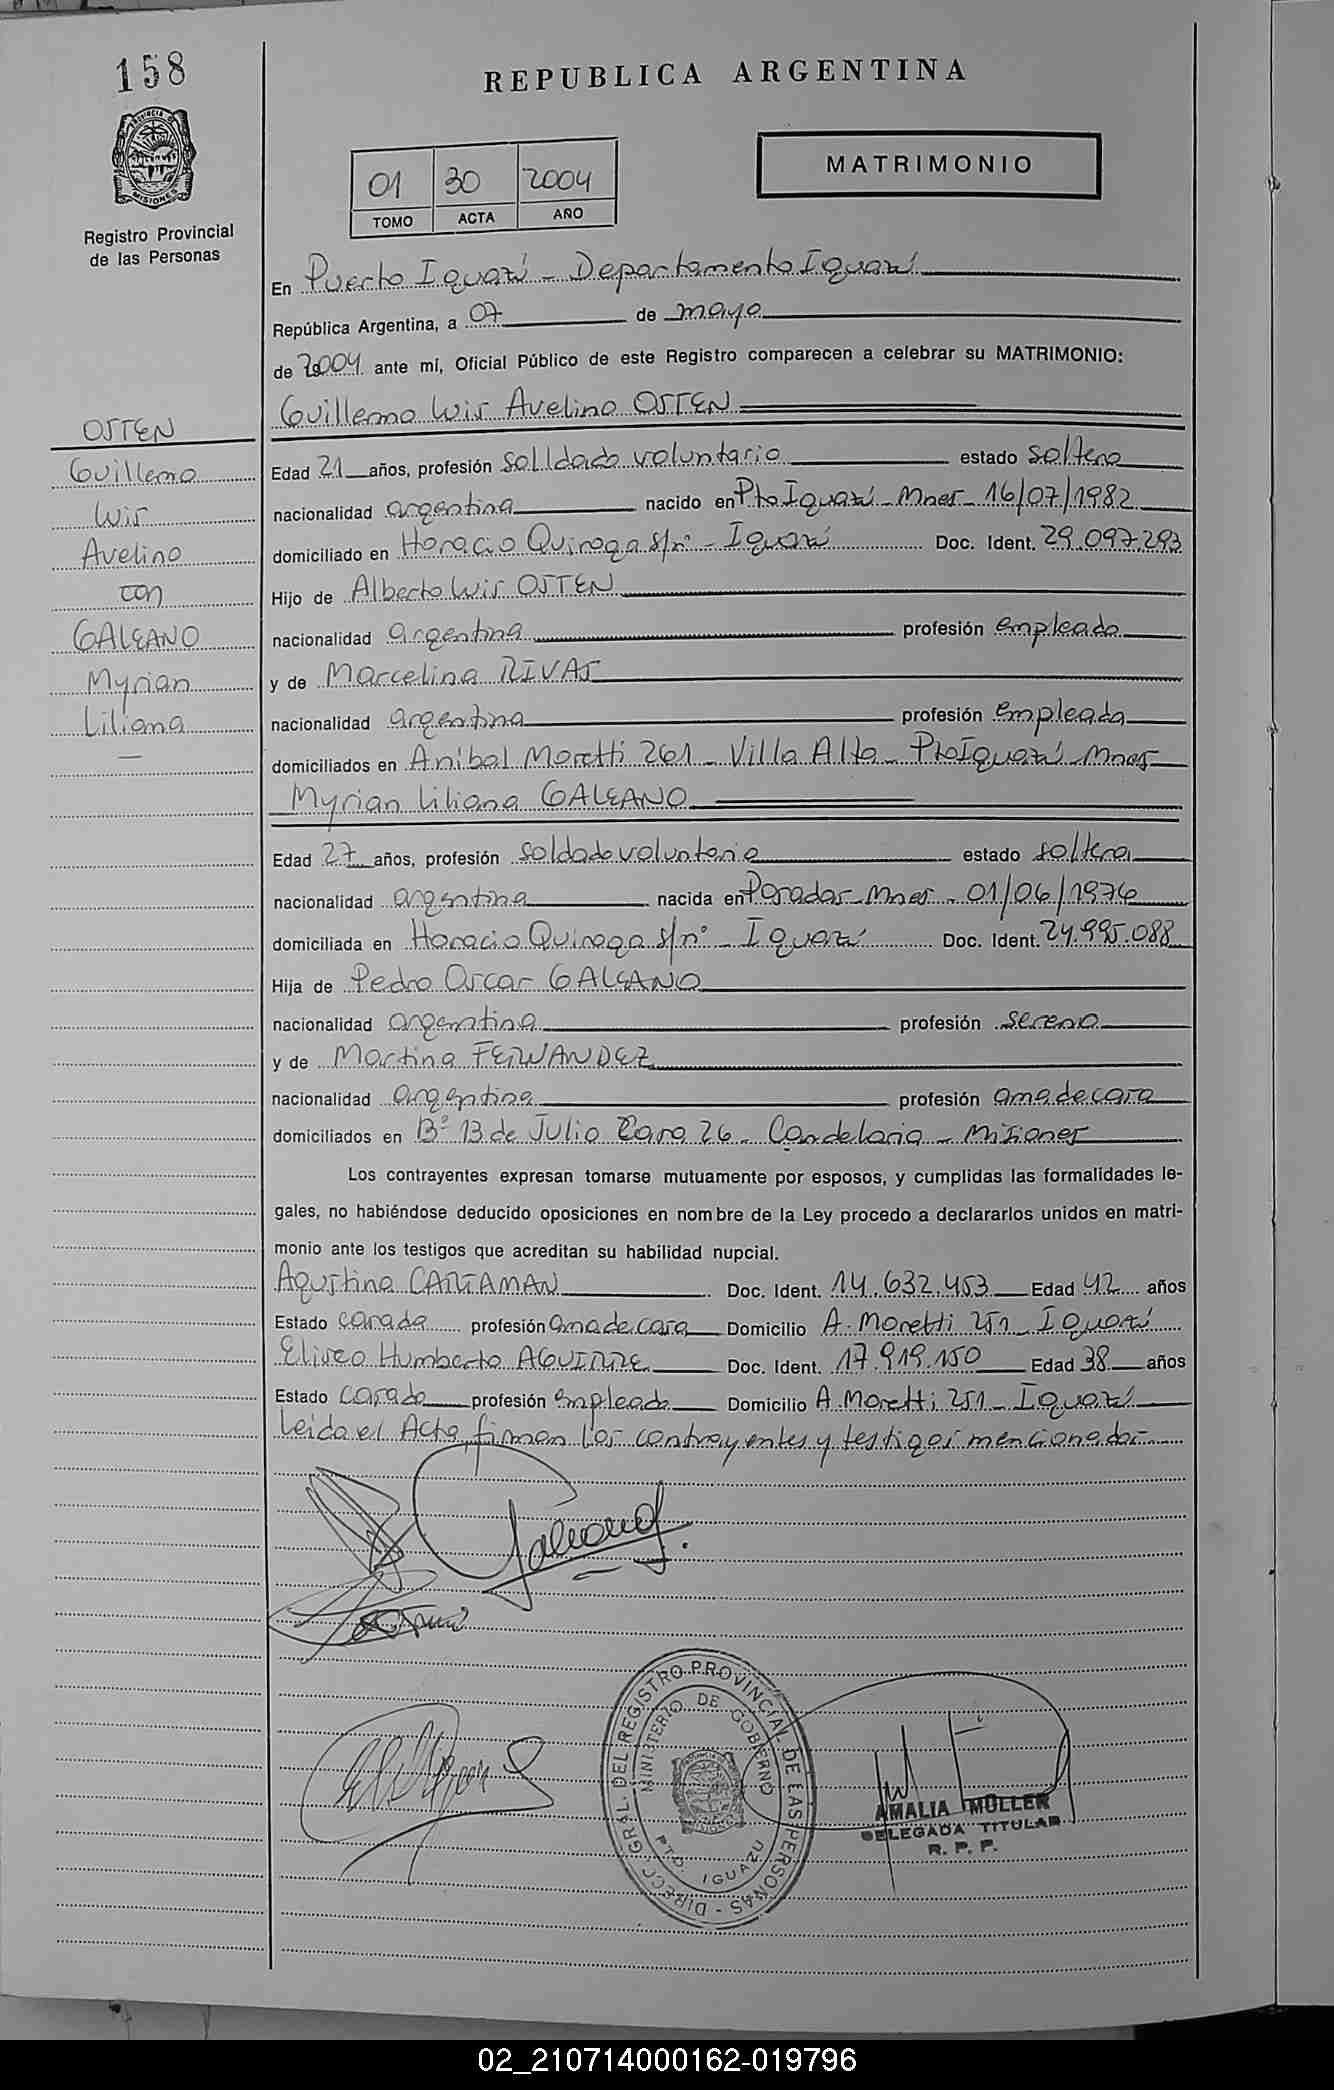 158
REPUBLICA ARGENTINA
MATRIMONIO
01 30 2004
TOMO ACTA AÑO
PROVINCIA D
MISIONES
Registro Provincial
de las Personas
En Puerto Iguazú - Departamento Iguazú
República Argentina, a 07 de mayo
de 2004 ante mí, Oficial Público de este Registro comparecen a celebrar su MATRIMONIO:
Guillermo Luis Avelino OSTEN
OSTEN
Guillermo
Luis
Avelino
con
GALEANO
Myrian
Liliana
—
Edad 21 años, profesión solldado voluntario estado soltero
nacionalidad argentina nacido en Pto Iguazú - Mnes - 16/07/1982
domiciliado en Horacio Quiroga s/nº - Iguazú Doc. Ident. 29.097.293
Hijo de Alberto Luis OSTEN
nacionalidad argentina profesión empleado
y de Marcelina RIVAS
nacionalidad argentina profesión empleada
domiciliados en Anibal Moretti 261 - Villa Alta - Pto Iguazú - Mnes
Myrian Liliana GALEANO
Edad 27 años, profesión soldado voluntario estado soltera
nacionalidad argentina nacida en Posadas - Mnes - 01/06/1976
domiciliada en Horacio Quiroga s/nº - Iguazú Doc. Ident. 24.995.088
Hija de Pedro Oscar GALEANO
nacionalidad argentina profesión sereno
y de Martina FERNANDEZ
nacionalidad argentina profesión ama de casa
domiciliados en Bº 13 de Julio Casa 26 - Candelaria - Misiones
Los contrayentes expresan tomarse mutuamente por esposos, y cumplidas las formalidades le-
gales, no habiéndose deducido oposiciones en nombre de la Ley procedo a declararlos unidos en matri-
monio ante los testigos que acreditan su habilidad nupcial.
Agustina CARIAMAN Doc. Ident. 14.632.453 Edad 42 años
Estado casada profesión ama de casa Domicilio A. Moretti 251 - Iguazú
Eliseo Humberto AGUIRRE Doc. Ident. 17.919.150 Edad 38 años
Estado casado profesión empleado Domicilio A. Moretti 251 - Iguazú
Leida el Acta, firman los contrayentes y testigos mencionados
Galeano
DIRECC. GRAL. DEL REGISTRO PROVINCIAL DE LAS PERSONAS -
MINISTERIO DE GOBIERNO
PTO. IGUAZU
AMALIA MÜLLER
DELEGADA TITULAR
R. P. P.
02_210714000162-019796